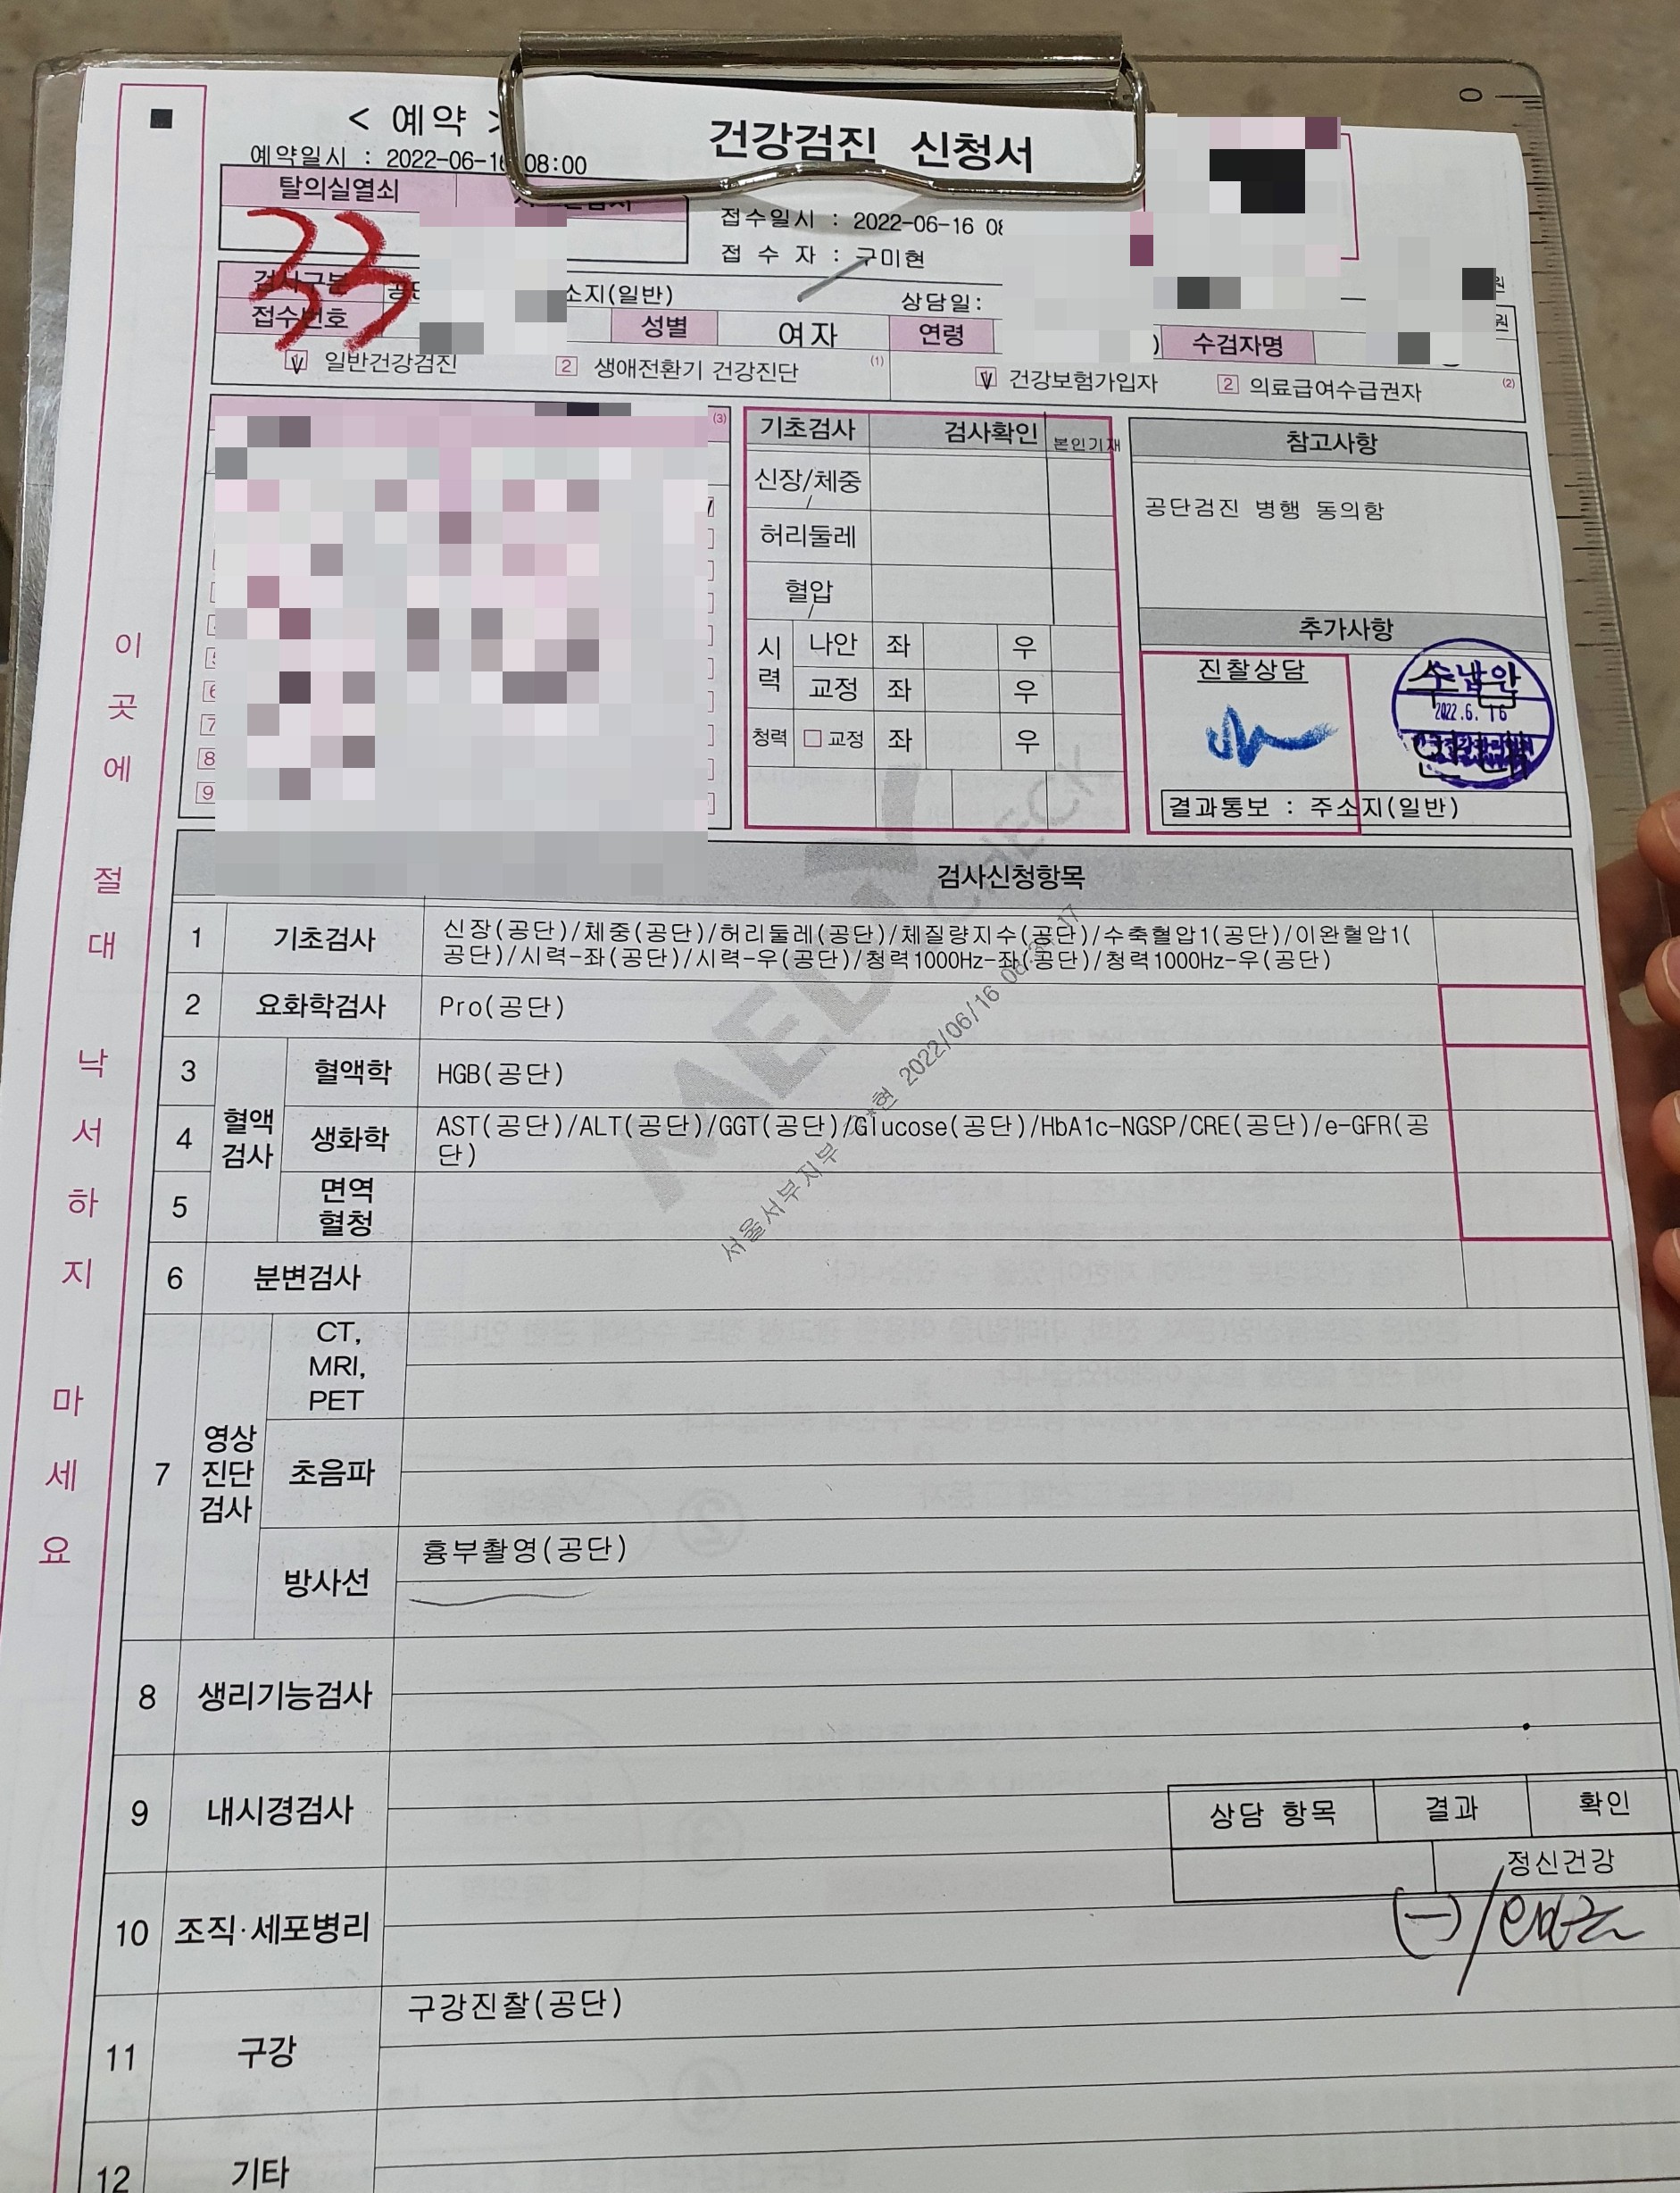 < 예약 >
건강검진 신청서
예약일시 : 2022-06-16 08:00
탈의실열쇠
33
접수일시 : 2022-06-16
접 수 자 : 구미현
검사구분
소지(일반)
상담일:
접수번호
성별 여자 연령 수검자명
일반건강검진 2 생애전환기 건강진단 (1) 건강보험가입자 2 의료급여수급권자 (2)
(3)
5
6
7
8
9
기초검사 검사확인 본인기재
신장/체중
허리둘레
혈압
시력 나안 좌 우
교정 좌 우
청력 교정 좌 우
참고사항
공단검진 병행 동의함
추가사항
진찰상담
수납인
2022.6.16
결과통보 : 주소지(일반)
검사신청항목
1 기초검사 신장(공단)/체중(공단)/허리둘레(공단)/체질량지수(공단)/수축혈압1(공단)/이완혈압1(
공단)/시력-좌(공단)/시력-우(공단)/청력1000Hz-좌(공단)/청력1000Hz-우(공단)
2 요화학검사 Pro(공단)
혈액
검사
3 혈액학 HGB(공단)
4 생화학 AST(공단)/ALT(공단)/GGT(공단)/Glucose(공단)/HbA1c-NGSP/CRE(공단)/e-GFR(공
단)
5 면역
혈청
6 분변검사
7 영상
진단
검사
CT,
MRI,
PET
초음파
방사선 흉부촬영(공단)
8 생리기능검사
9 내시경검사
상담 항목 결과 확인
정신건강
(-)/
10 조직·세포병리
11 구강 구강진찰(공단)
12 기타
이곳에 절대 낙서하지 마세요
MED CHECK
서울서부지부 *현 2022/06/16
0